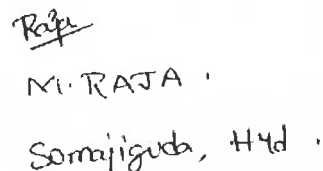 Raja
M. RAJA .
Somajiguda, Hyd .